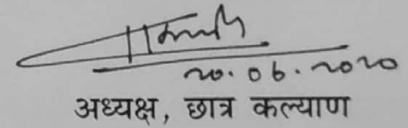 20.06.2020
अध्यक्ष, छात्र कल्याण